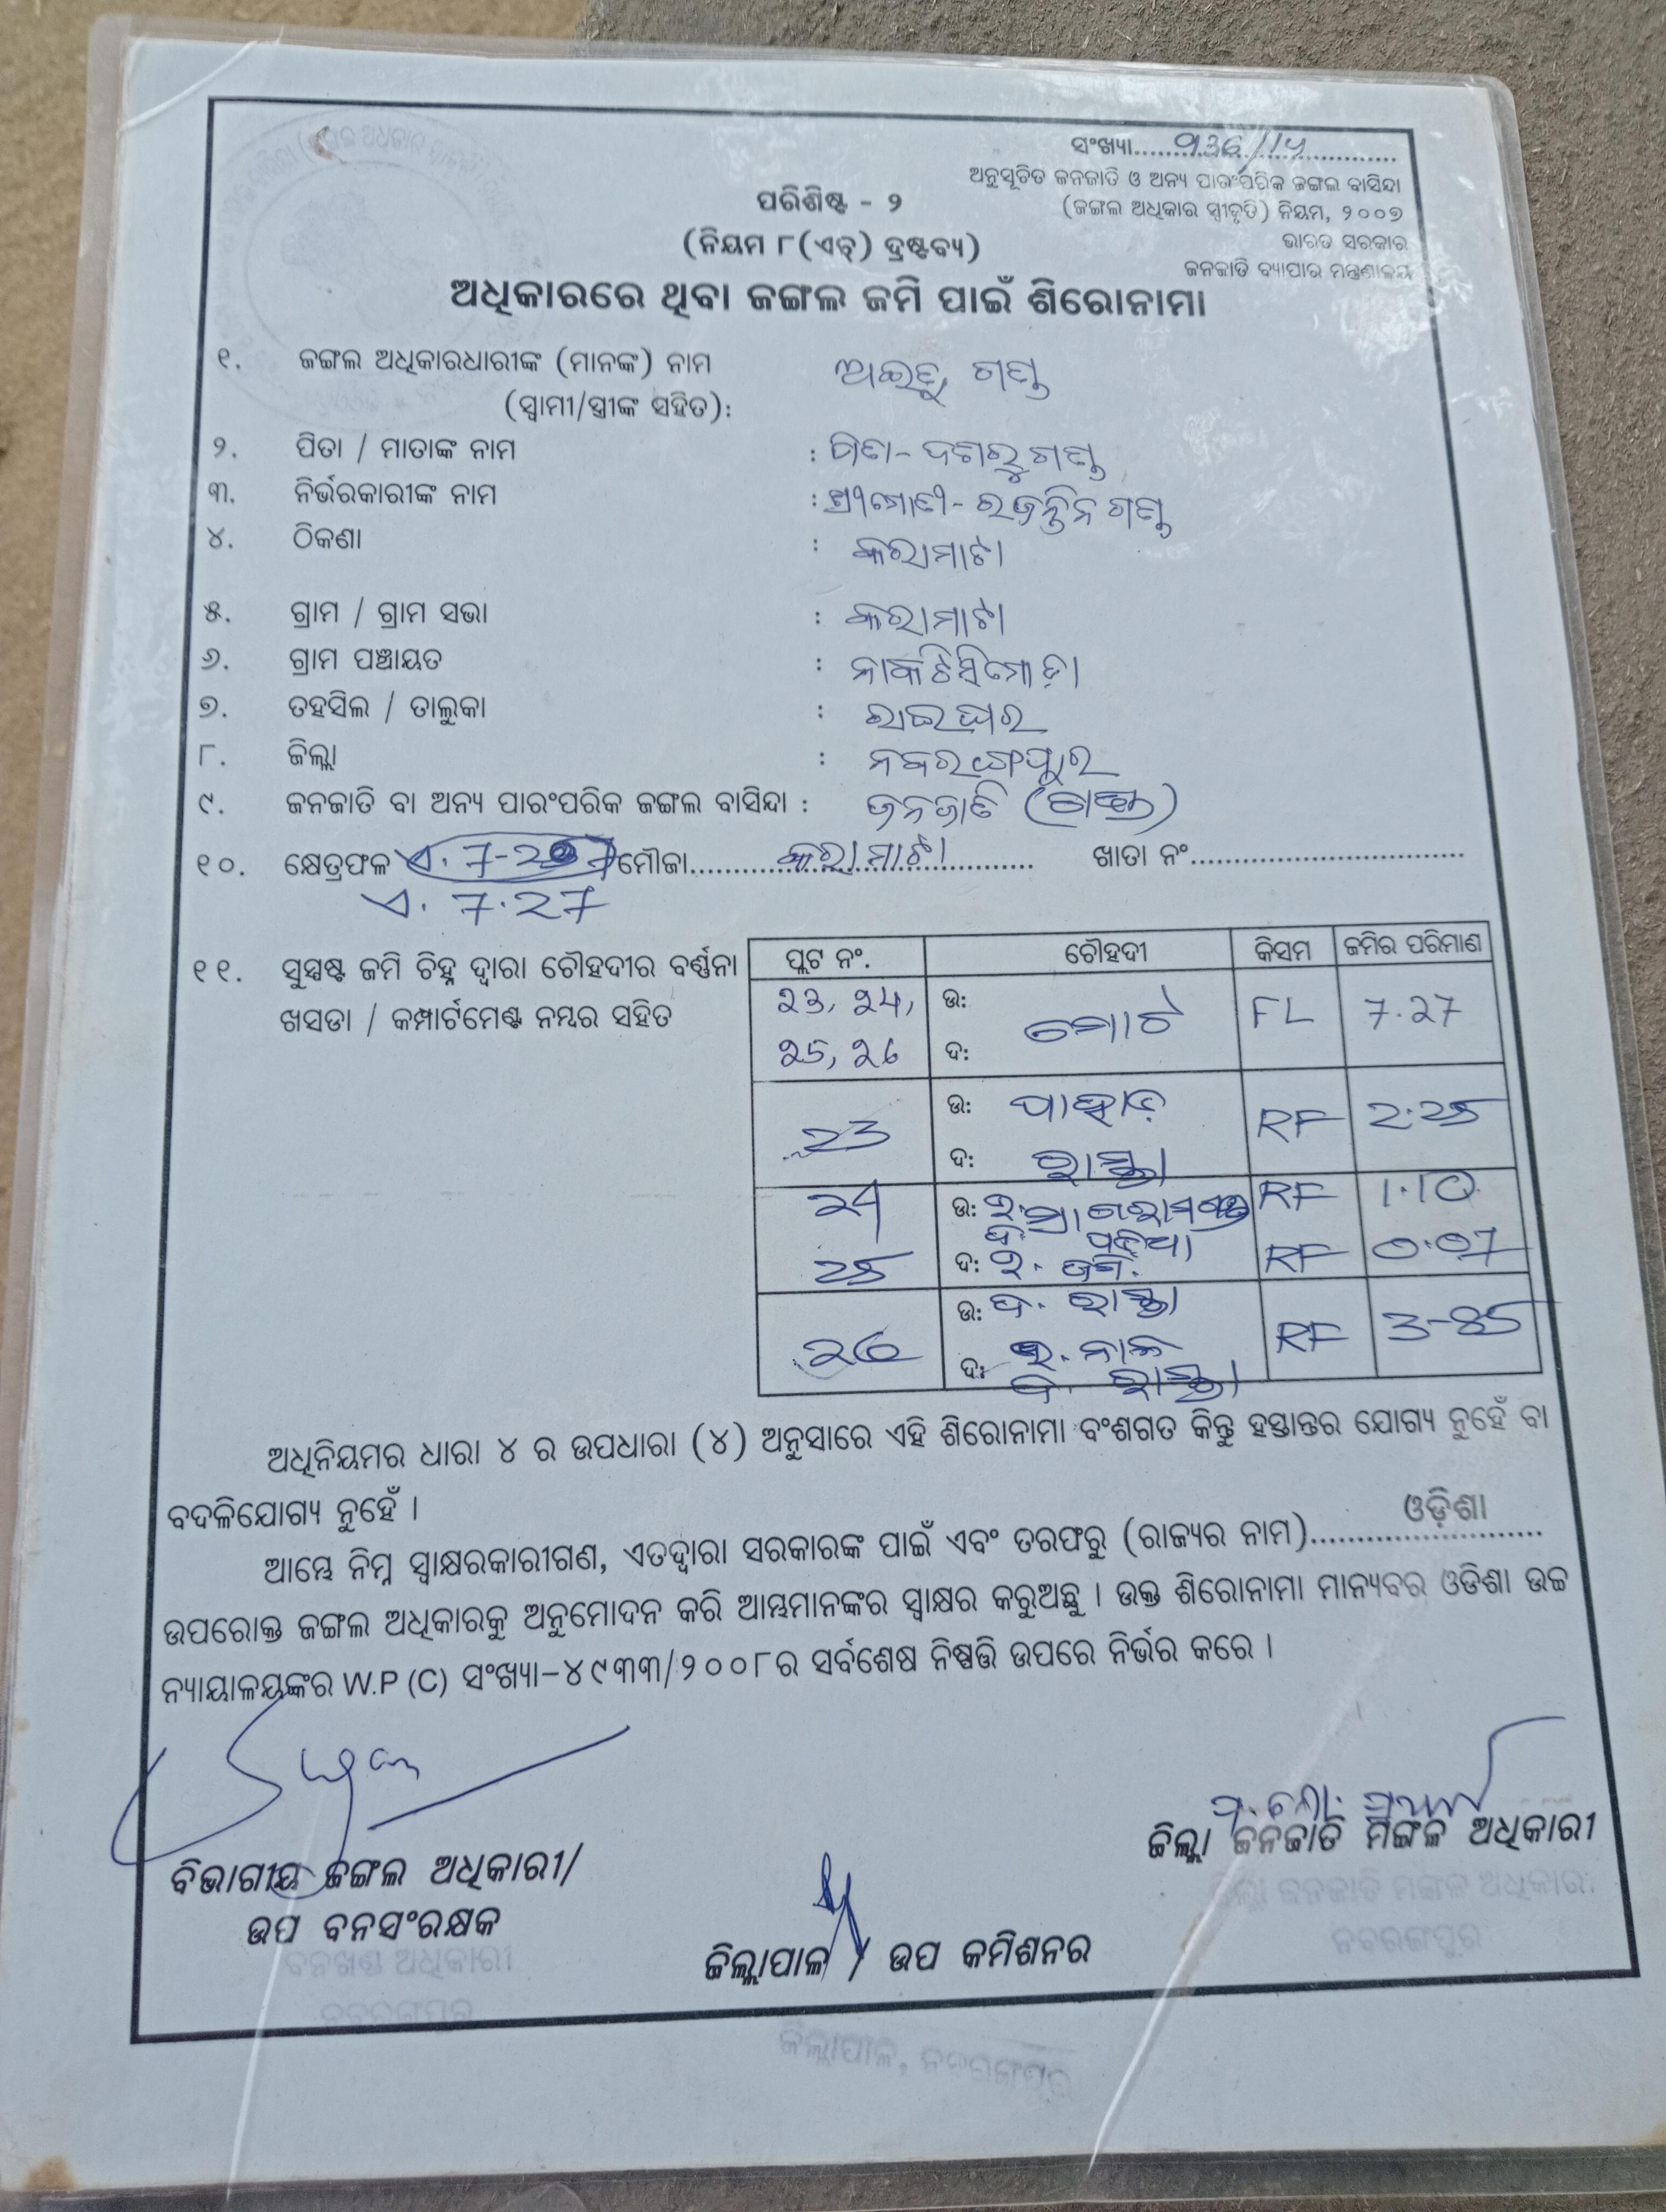 ସଂଖ୍ୟା.......936/14.......
ଅନୁସୂଚିତ ଜନଜାତି ଓ ଅନ୍ୟ ପାରଂପରିକ ଜଙ୍ଗଲ ବାସିନ୍ଦା
(ଜଙ୍ଗଲ ଅଧିକାର ସ୍ୱୀକୃତି) ନିୟମ, ୨୦୦୭
ଭାରତ ସରକାର
ଜନଜାତି ବ୍ୟାପାର ମନ୍ତ୍ରଣାଳୟ
ପରିଶିଷ୍ଟ - ୨
(ନିୟମ ୮(ଏଚ୍) ଦ୍ରଷ୍ଟବ୍ୟ)
ଅଧିକାରରେ ଥିବା ଜଙ୍ଗଲ ଜମି ପାଇଁ ଶିରୋନାମା
୧. ଜଙ୍ଗଲ ଅଧିକାରଧାରୀଙ୍କ (ମାନଙ୍କ) ନାମ ଗଣ୍ଡ
(ସ୍ୱାମୀ/ସ୍ତ୍ରୀଙ୍କ ସହିତ):
୨. ପିତା / ମାତାଙ୍କ ନାମ : ପିତା- ଦଶରୁ ଗଣ୍ଡ
୩. ନିର୍ଭରକାରୀଙ୍କ ନାମ : ଗଣ୍ଡ
୪. ଠିକଣା : କରାମାଟା
୫. ଗ୍ରାମ / ଗ୍ରାମ ସଭା : କରାମାଟା
୬. ଗ୍ରାମ ପଞ୍ଚାୟତ : ନାକଟିସିମୋଡ଼ା
୭. ତହସିଲ / ତାଲୁକା : ରାଇଘର
୮. ଜିଲ୍ଲା : ନବରଙ୍ଗପୁର
୯. ଜନଜାତି ବା ଅନ୍ୟ ପାରଂପରିକ ଜଙ୍ଗଲ ବାସିନ୍ଦା : ଜନଜାତି (ଗଣ୍ଡ)
୧୦. କ୍ଷେତ୍ରଫଳ ଏ. 7-27 ମୌଜା.......କରାମାଟା....... ଖାତା ନଂ..............
ଏ. 7.27
୧୧. ସୁସ୍ପଷ୍ଟ ଜମି ଚିହ୍ନ ଦ୍ୱାରା ଚୌହଦୀର ବର୍ଣ୍ଣନା
ଖସଡା / କମ୍ପାର୍ଟମେଣ୍ଟ ନମ୍ବର ସହିତ
ପ୍ଲଟ ନଂ. ଚୌହଦୀ କିସମ ଜମିର ପରିମାଣ
23, 24, ଉ: ମୋଟ FL 7.27
25, 26 ଦ:
23 ଉ: ପାହାଡ଼ RF 2.25
ଦ: ରାସ୍ତା
24 ଉ: RF 1.10
ପଡ଼ିଆ
25 ଦ: ଉ. ଜମି. RF 0.07
ଉ: ଦ. ରାସ୍ତା
26 ଉ. ନାଳ RF 3-85
ଦ: ଦ. ରାସ୍ତା
ଅଧିନିୟମର ଧାରା ୪ ର ଉପଧାରା (୪) ଅନୁସାରେ ଏହି ଶିରୋନାମା ବଂଶଗତ କିନ୍ତୁ ହସ୍ତାନ୍ତର ଯୋଗ୍ୟ ନୁହେଁ ବା
ବଦଳିଯୋଗ୍ୟ ନୁହେଁ ।
ଆମ୍ଭେ ନିମ୍ନ ସ୍ୱାକ୍ଷରକାରୀଗଣ, ଏତଦ୍ୱାରା ସରକାରଙ୍କ ପାଇଁ ଏବଂ ତରଫରୁ (ରାଜ୍ୟର ନାମ).......ଓଡ଼ିଶା.......
ଉପରୋକ୍ତ ଜଙ୍ଗଲ ଅଧିକାରକୁ ଅନୁମୋଦନ କରି ଆମ୍ଭମାନଙ୍କର ସ୍ୱାକ୍ଷର କରୁଅଛୁ । ଉକ୍ତ ଶିରୋନାମା ମାନ୍ୟବର ଓଡିଶା ଉଚ୍ଚ
ନ୍ୟାୟାଳୟଙ୍କର W.P (C) ସଂଖ୍ୟା-୪୯୩୩/୨୦୦୮ର ସର୍ବଶେଷ ନିଷ୍ପତ୍ତି ଉପରେ ନିର୍ଭର କରେ ।
ଜିଲ୍ଲା ଜନଜାତି ମଙ୍ଗଳ ଅଧିକାରୀ
ବିଭାଗୀୟ ଜଙ୍ଗଲ ଅଧିକାରୀ/
ଜିଲ୍ଲା ଜନଜାତି ମଙ୍ଗଳ ଅଧିକାରୀ
ଉପ ବନସଂରକ୍ଷକ
ନବରଙ୍ଗପୁର
ଜିଲ୍ଲାପାଳ / ଉପ କମିଶନର
ବନଖଣ୍ଡ ଅଧିକାରୀ
ନବରଙ୍ଗପୁର
ଜିଲ୍ଲାପାଳ, ନବରଙ୍ଗପୁର